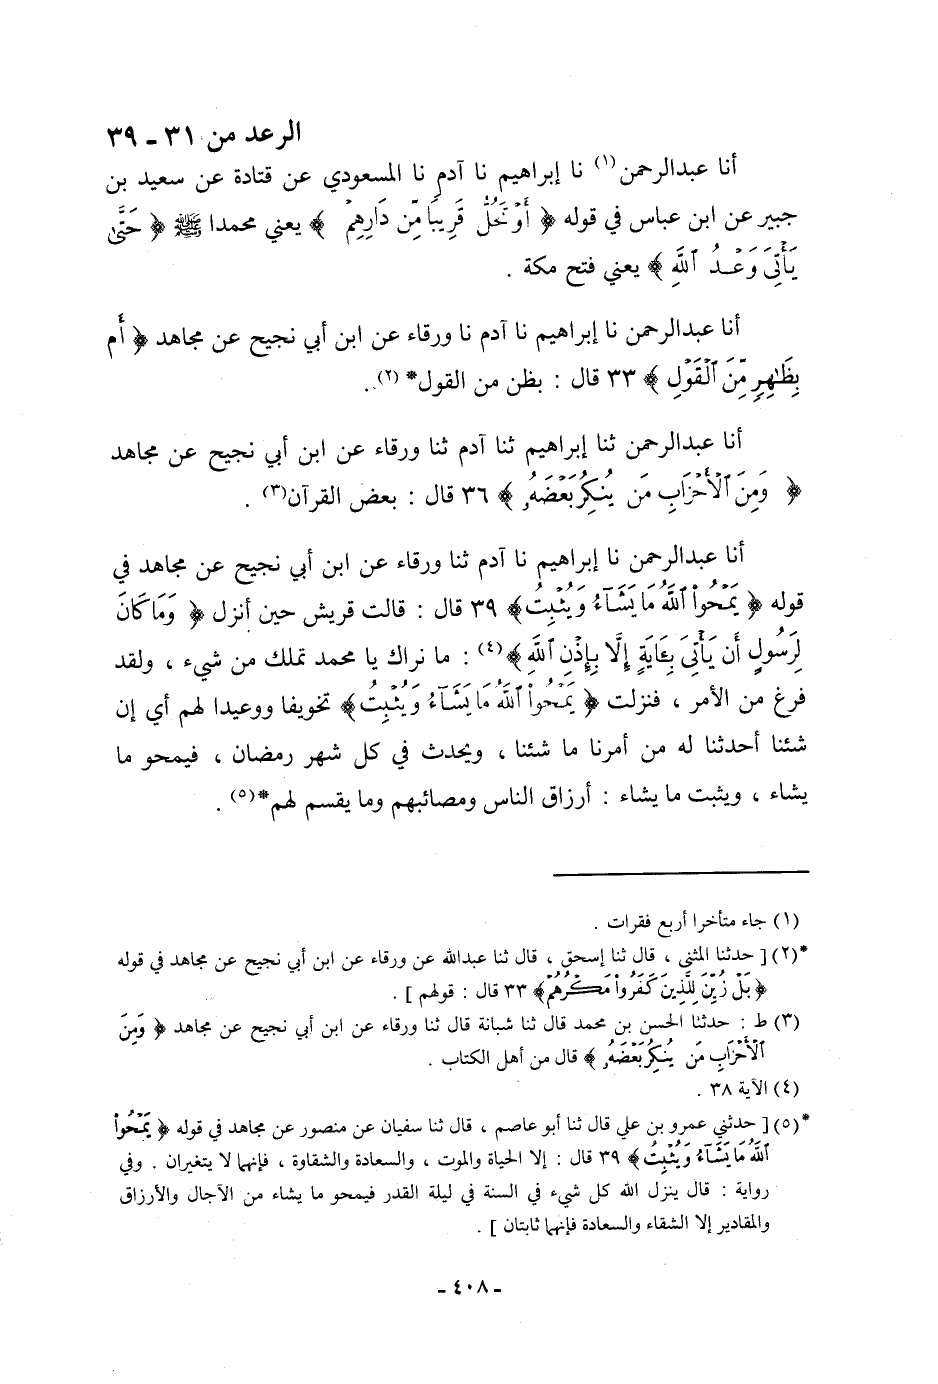 الرعد من ٣١ ـ ٣٩
أنا عبدالرحمن(١) نا إبراهيم نا آدم نا المسعودي عن قتادة عن سعيد بن
جبير عن ابن عباس في قوله ﴿ أَوْ تَحُلُّ قَرِيبًا مِّن دَارِهِمْ ﴾ يعني محمدا ﷺ ﴿ حَتَّىٰ
يَأْتِيَ وَعْدُ ٱللَّهِ ﴾ يعني فتح مكة .
أنا عبدالرحمن نا إبراهيم نا آدم نا ورقاء عن ابن أبي نجيح عن مجاهد ﴿ أَم
بِظَٰهِرٍ مِّنَ ٱلْقَوْلِ ﴾ ٣٣ قال : بظن من القول*(٢).
أنا عبدالرحمن ثنا إبراهيم ثنا آدم ثنا ورقاء عن ابن أبي نجيح عن مجاهد
﴿ وَمِنَ ٱلْأَحْزَابِ مَن يُنكِرُ بَعْضَهُۥ ﴾ ٣٦ قال : بعض القرآن(٣) .
أنا عبدالرحمن نا إبراهيم نا آدم ثنا ورقاء عن ابن أبي نجيح عن مجاهد في
قوله ﴿ يَمْحُوا۟ ٱللَّهُ مَا يَشَآءُ وَيُثْبِتُ﴾ ٣٩ قال : قالت قريش حين أنزل ﴿ وَمَا كَانَ
لِرَسُولٍ أَن يَأْتِيَ بِـَٔايَةٍ إِلَّا بِإِذْنِ ٱللَّهِ ﴾(٤) : ما نراك يا محمد تملك من شيء ، ولقد
فرغ من الأمر ، فنزلت ﴿ يَمْحُوا۟ ٱللَّهُ مَا يَشَآءُ وَيُثْبِتُ﴾ تخويفا ووعيدا لهم أي إن
شئنا أحدثنا له من أمرنا ما شئنا ، ويحدث في كل شهر رمضان ، فيمحو ما
يشاء ، ويثبت ما يشاء : أرزاق الناس ومصائبهم وما يقسم لهم*(٥) .
(١) جاء متأخرا أربع فقرات .
*(٢) [ حدثنا المثنى ، قال ثنا إسحق ، قال ثنا عبدالله عن ورقاء عن ابن أبي نجيح عن مجاهد في قوله
﴿ بَلْ زُيِّنَ لِلَّذِينَ كَفَرُوا۟ مَكْرُهُمْ﴾ ٣٣ قال : قولهم ] .
(٣) ط : حدثنا الحسن بن محمد قال ثنا شبانة قال ثنا ورقاء عن ابن أبي نجيح عن مجاهد ﴿ وَمِنَ
ٱلْأَحْزَابِ مَن يُنكِرُ بَعْضَهُۥ ﴾ قال من أهل الكتاب .
(٤) الآية ٣٨ .
*(٥) [ حدثني عمرو بن علي قال ثنا أبو عاصم ، قال ثنا سفيان عن منصور عن مجاهد في قوله ﴿ يَمْحُوا۟
ٱللَّهُ مَا يَشَآءُ وَيُثْبِتُ﴾ ٣٩ قال : إلا الحياة والموت ، والسعادة والشقاوة ، فإنهما لا يتغيران . وفي
رواية : قال ينزل الله كل شيء في السنة في ليلة القدر فيمحو ما يشاء من الآجال والأرزاق
والمقادير إلا الشقاء والسعادة فإنهما ثابتان ] .
ـ ٤٠٨ ـ